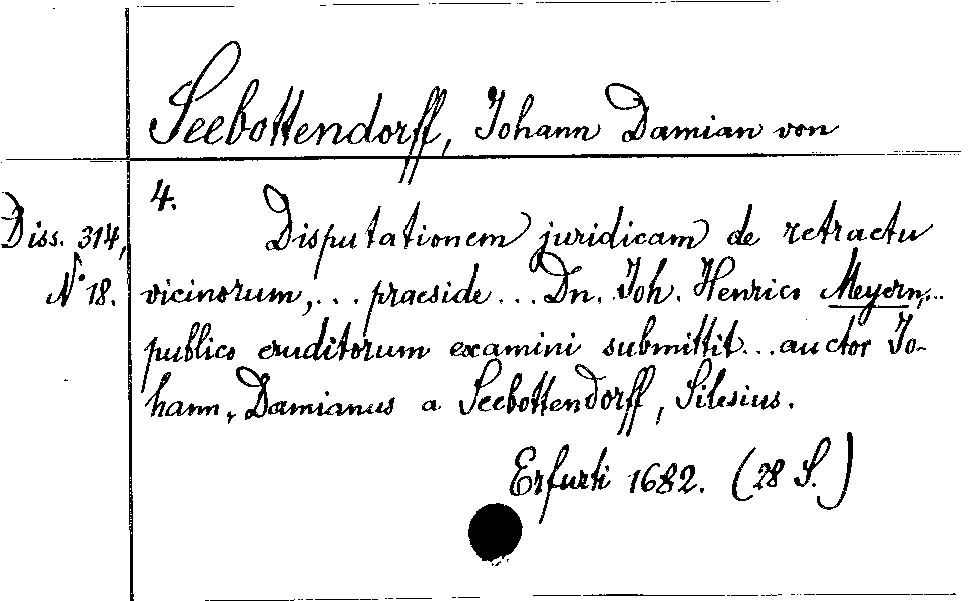 Seebottendorff, Johann Damian von
4.
Diss. 314,
N° 18.
Disputationem juridicam de retractu
vicinorum, ... praeside ... Dn. Joh. Henrico Meyern, ...
publico eruditorum examini submittit ... auctor Jo-
hann, Damianus a Seebottendorff, Silesius.
Erfurti 1682. (28 S.)